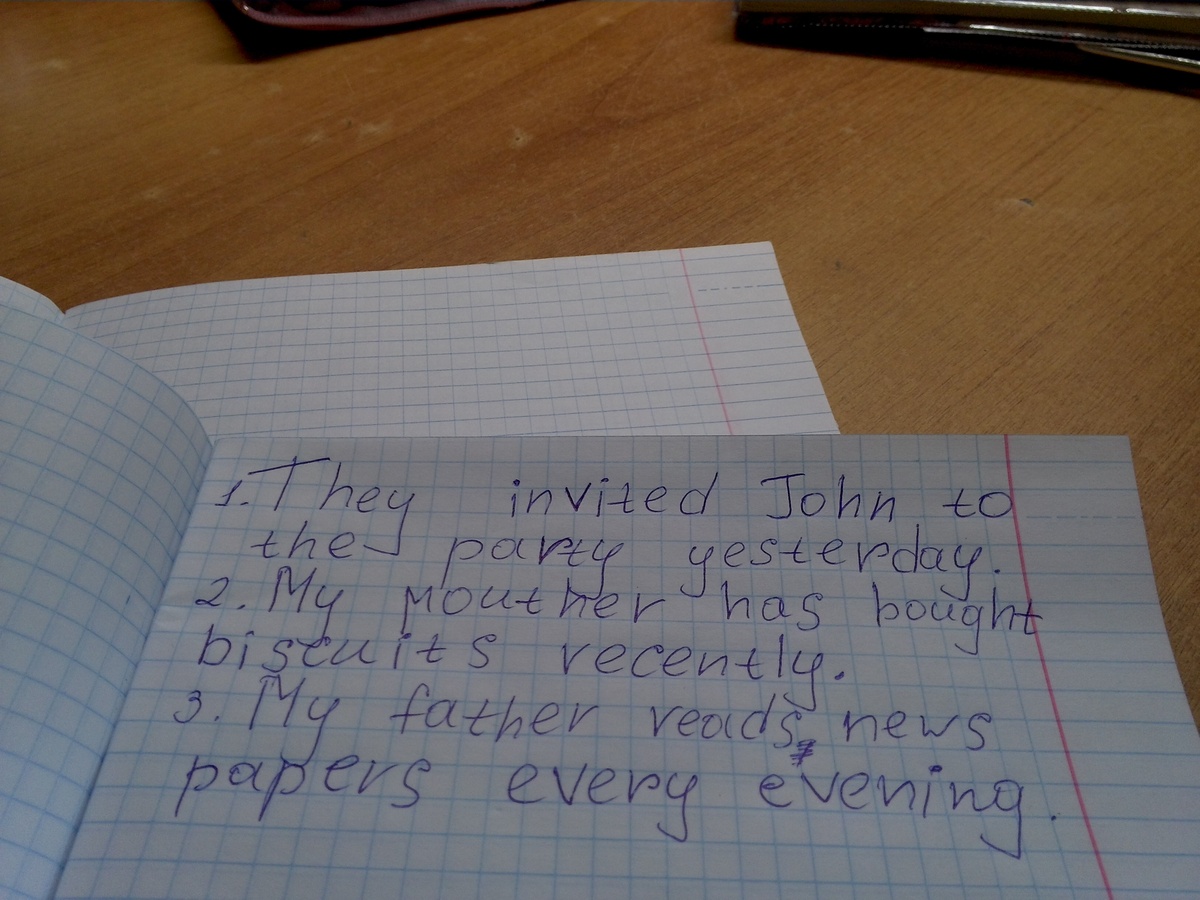 1. They invited John to
the party yesterday.
2. My mouther has bought
biscuits recently.
3. My father reads news
papers every evening.